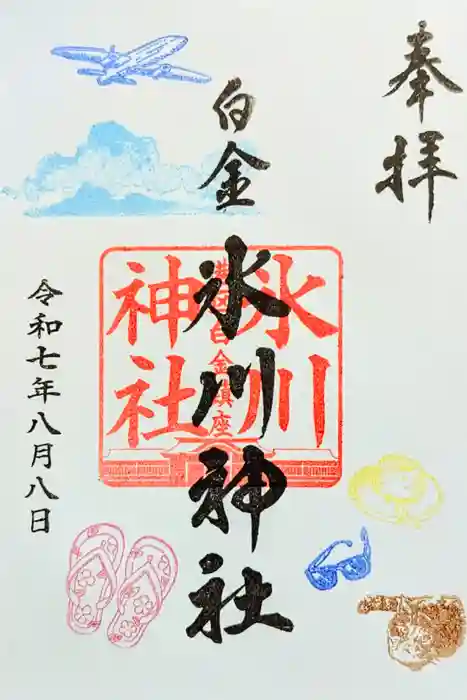 奉拝
白金
氷川神社
氷川
神社
港区白金鎮座
令和七年八月八日